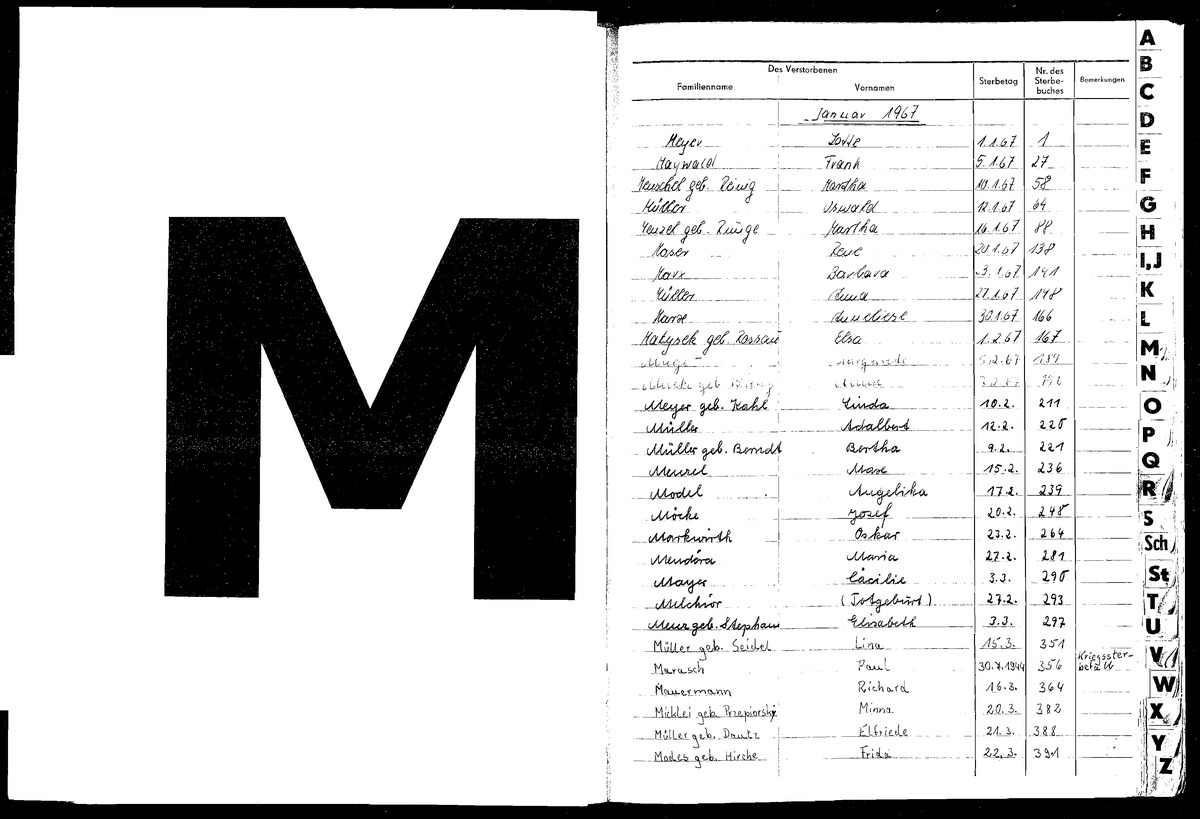 M
Des Verstorbenen
Familienname Vornamen Sterbetag Nr. des Sterbe-buches Bemerkungen
Januar 1967
Meyer Lotte 1.1.67 1
Maywald Frank 5.1.67 27
Meuschel geb. Martha 10.1.67 58
Müller Oswald 12.1.67 64
Menzel geb. Runge Martha 16.1.67 88
Moser Rene 20.1.67 138
Marx Barbara 3.1.67 141
Müller Anna 27.1.67 148
Anneliese 30.1.67 166
Matysek geb. Elsa 1.2.67 167
5.2.67 189
Meyer geb. Kahl Linda 10.2. 211
Müller Adalbert 12.2. 220
Müller geb. Berndt Bertha 9.2. 221
Menzel Max 15.2. 236
Model Angelika 17.2. 239
Möcke Josef 20.2. 248
Markwirth Oskar 23.2. 264
Mendóra Maria 27.2. 281
Mayer Cäcilie 3.3. 290
Melchior (Totgeburt) 27.2. 293
Menz geb. Stephan Elisabeth 3.3. 297
Müller geb. Seidel Lina 15.3. 351
Marasch Paul 30.7.1944 356 Kriegsster-befall
Mauermann Richard 16.3. 364
Micklei geb. Przepiorski Minna 20.3. 382
Müller geb. Dautz Elfriede 21.3. 388
Modes geb. Hirche Frida 22.3. 391
A
B
C
D
E
F
G
H
I,J
K
L
M
N
O
P
Q
R
S
Sch
St
T
U
V
W
X
Y
Z